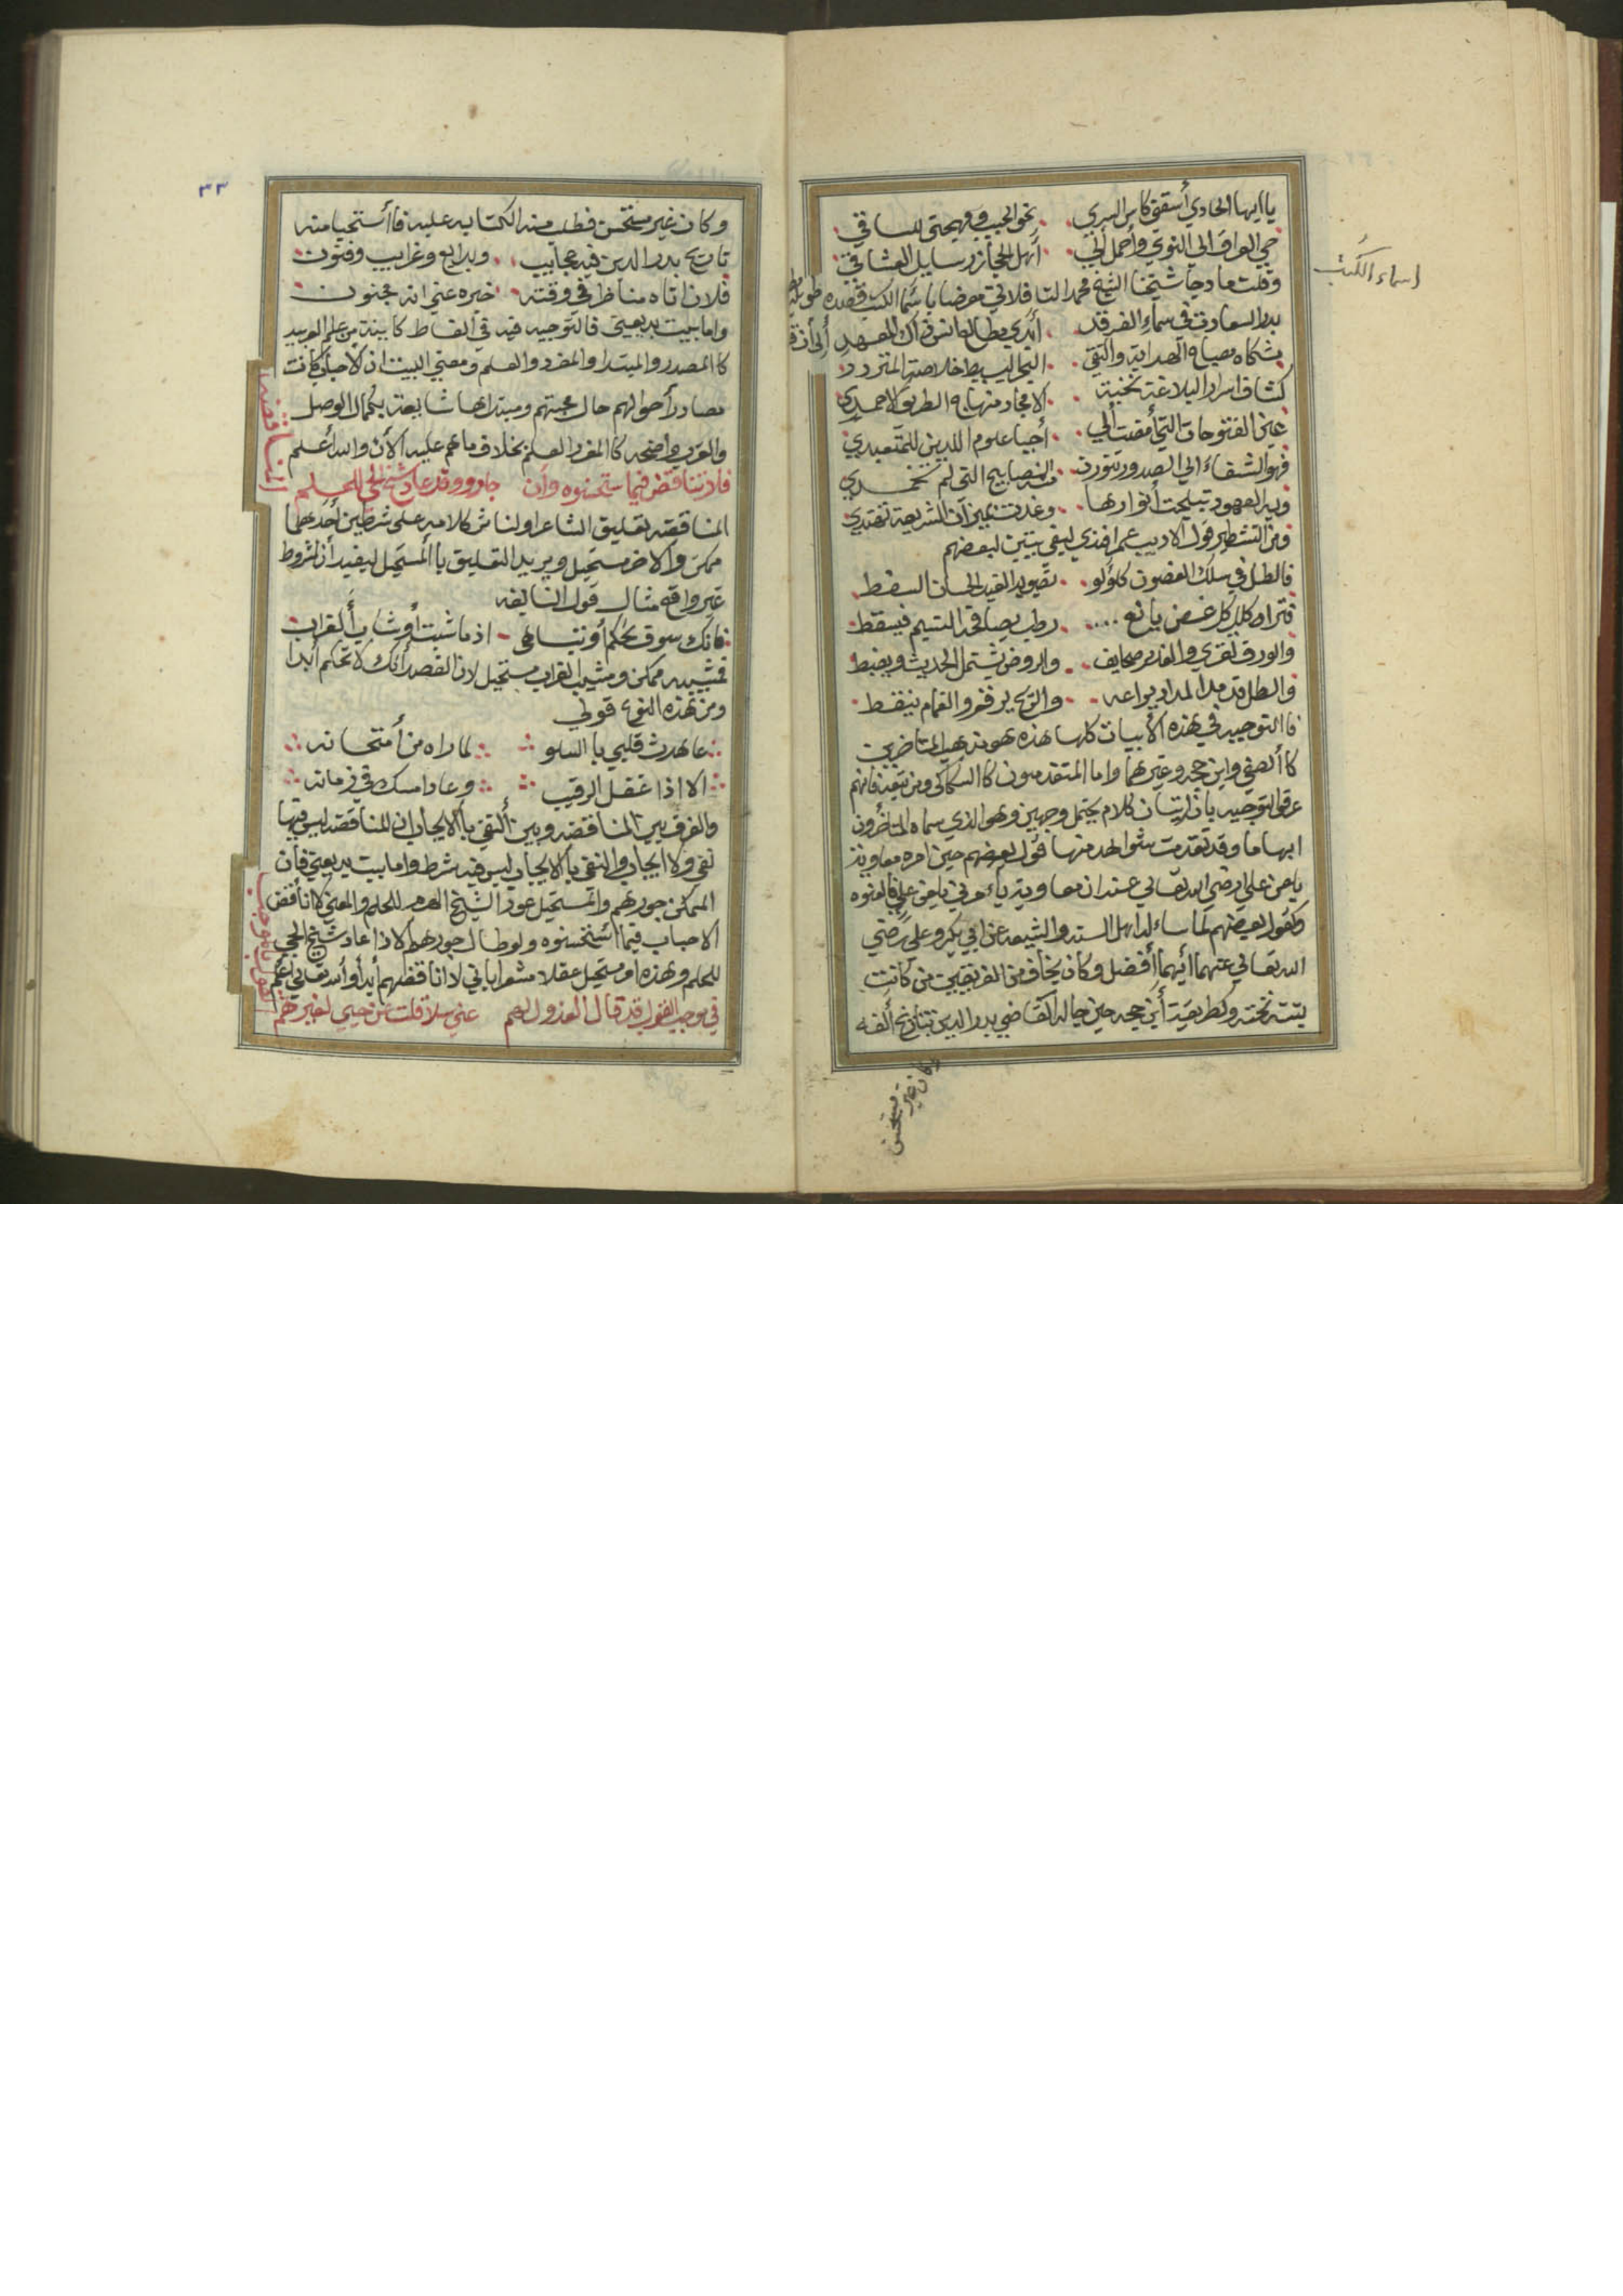 يا ايها الحادي أسقني كاس السري نحو الحبيب ومهجتي للساقي
حي العراق الي النوي وأحمل الي أهل الحجاز رسايل العشاقي
اسماء الكتب
وقلت مادحا شيخنا الشيخ محمد التافلاتي معرضا باسما الكتب قصيده طويله
بدر السعادة في سماء الفرقد أبدي مطالع انس ذاك المعهد
مشكاه مصباح الهداية والتقي البحر البسيط خلاصة المتردد
كشاف اسرار البلاغة نخبة الامجاد منهاج الطريق الاحمدي
عين الفتوحات التي أفضت الي أحيا علوم الدين للمتعبدي
فهو الشفاء الي الصدور تنورت منه المصابيح التي لم تخمدي
وبه العهود تبلجت أنوارها وغدت بميزان الشريعة تقتدي
ومن التشطير قول الاديب عمر افندي لبقي بيتين لبعضهم
فالطل في سلك الغصون كلؤلو نضويد الغيد الحسان السقط
فتراه كلل كل غصن يانع رطب يصافحه النسيم فيسقط
والورق تقري والغدير صحايف والروض يشتمل الحديث ويضبط
والطل قد مد المداد يراعه والريح يرقم والغمام ينقط
فا التوجيه في هذه الأبيات كلها هذه هو مذهب المتاخرين
كا الصفي وابن حجه وغيرهما واما المتقدمون كا السكاكي ومن تبعه فانهم
عرفوا التوجيه بان الاتيان كلام يحتمل وجهين وهو الذي سماه المتأخرون
ابهاما وقد تقدمت شواهد منها قول بعضهم حين امره معاوية
يلعن علي رضي الله تعالي عنه ان معاوية يأمرني بلعن علي فالعنوه
وكقول بعضهم لما ساء له اهل السنه والشيعه عن ابي بكر وعلي رضي
الله تعالي عنهما أيهما أفضل وكان يخاف من الفريقين من كانت
بنته تحته وكطريقة أبن حجه حين جا له القاضي بدر الدين بتاريخ ألفه
وكان غير مستحسن
٣٣
وكان غير مستحسن فطلب منه الكتابه عليه فا أستحيا منه
تاريخ بدر الدين فيه عجايب وبدايع وغرايب وفنون
فلان اتاه مناظر في وقته خبره عني انه مجنون
واما بيت بديعيتي فالتوجيه فيه في ألفاظ كاينة من علم العربيه
كا المصدر والمبتدا والمفرد والعلم ومعني البيت ان الأحباب كانت
مصادر أحوالهم حال محبتهم ومبتداها شايعة بكمال الوصل
والعرب واضحه كا المفرد العلم بخلاف ما هم عليه الأن والله أعلم
المناقضه
فلا تناقض فيما ستحسنوه وأن جاروا وقد عاد شيخ الحي للحلم
المناقضه تعليق الشاعر او لناش كلامه علي شرطين أحدهما
ممكن والاخر مستحيل ويريد التعليق با المستحيل ليفيد أن المشروط
غير واقع مثال قول النابغه
فانك سوف تحكم أو تناهي اذ ما شبت أو شاب الغراب
فمشيبه ممكن ومشيب الغراب مستحيل لان القصد انك لا تحكم أبدا
ومن هذه النوع قولي
عاهدت قلبي با السلو لما راه من أمتحانه
الا اذا غفل الرقيب وعاد امسك في زمانه
والفرق بين المناقضه وبين ألنفي با الايجاب ان المناقضه ليس فيها
نفي ولا ايجاب والنفي با الايجاب ليس فيه شرط واما بيت بديعيتي فان
الممكن جورهم والمستحيل عود الشيخ الهرم للحلم والمعني لا أناقض
الاحباب فيما استحسنوه ولو طال جورهم الا اذا عاد شيخ الحي
للحلم وهذه امر مستحيل عقلا مشعرا باني لا اناقضهم أبدا والله تعالي أعلم
القول بالموجب
في موجب القول قد قال العذول لهم عني سلا قلت عن حبي لغيرهم